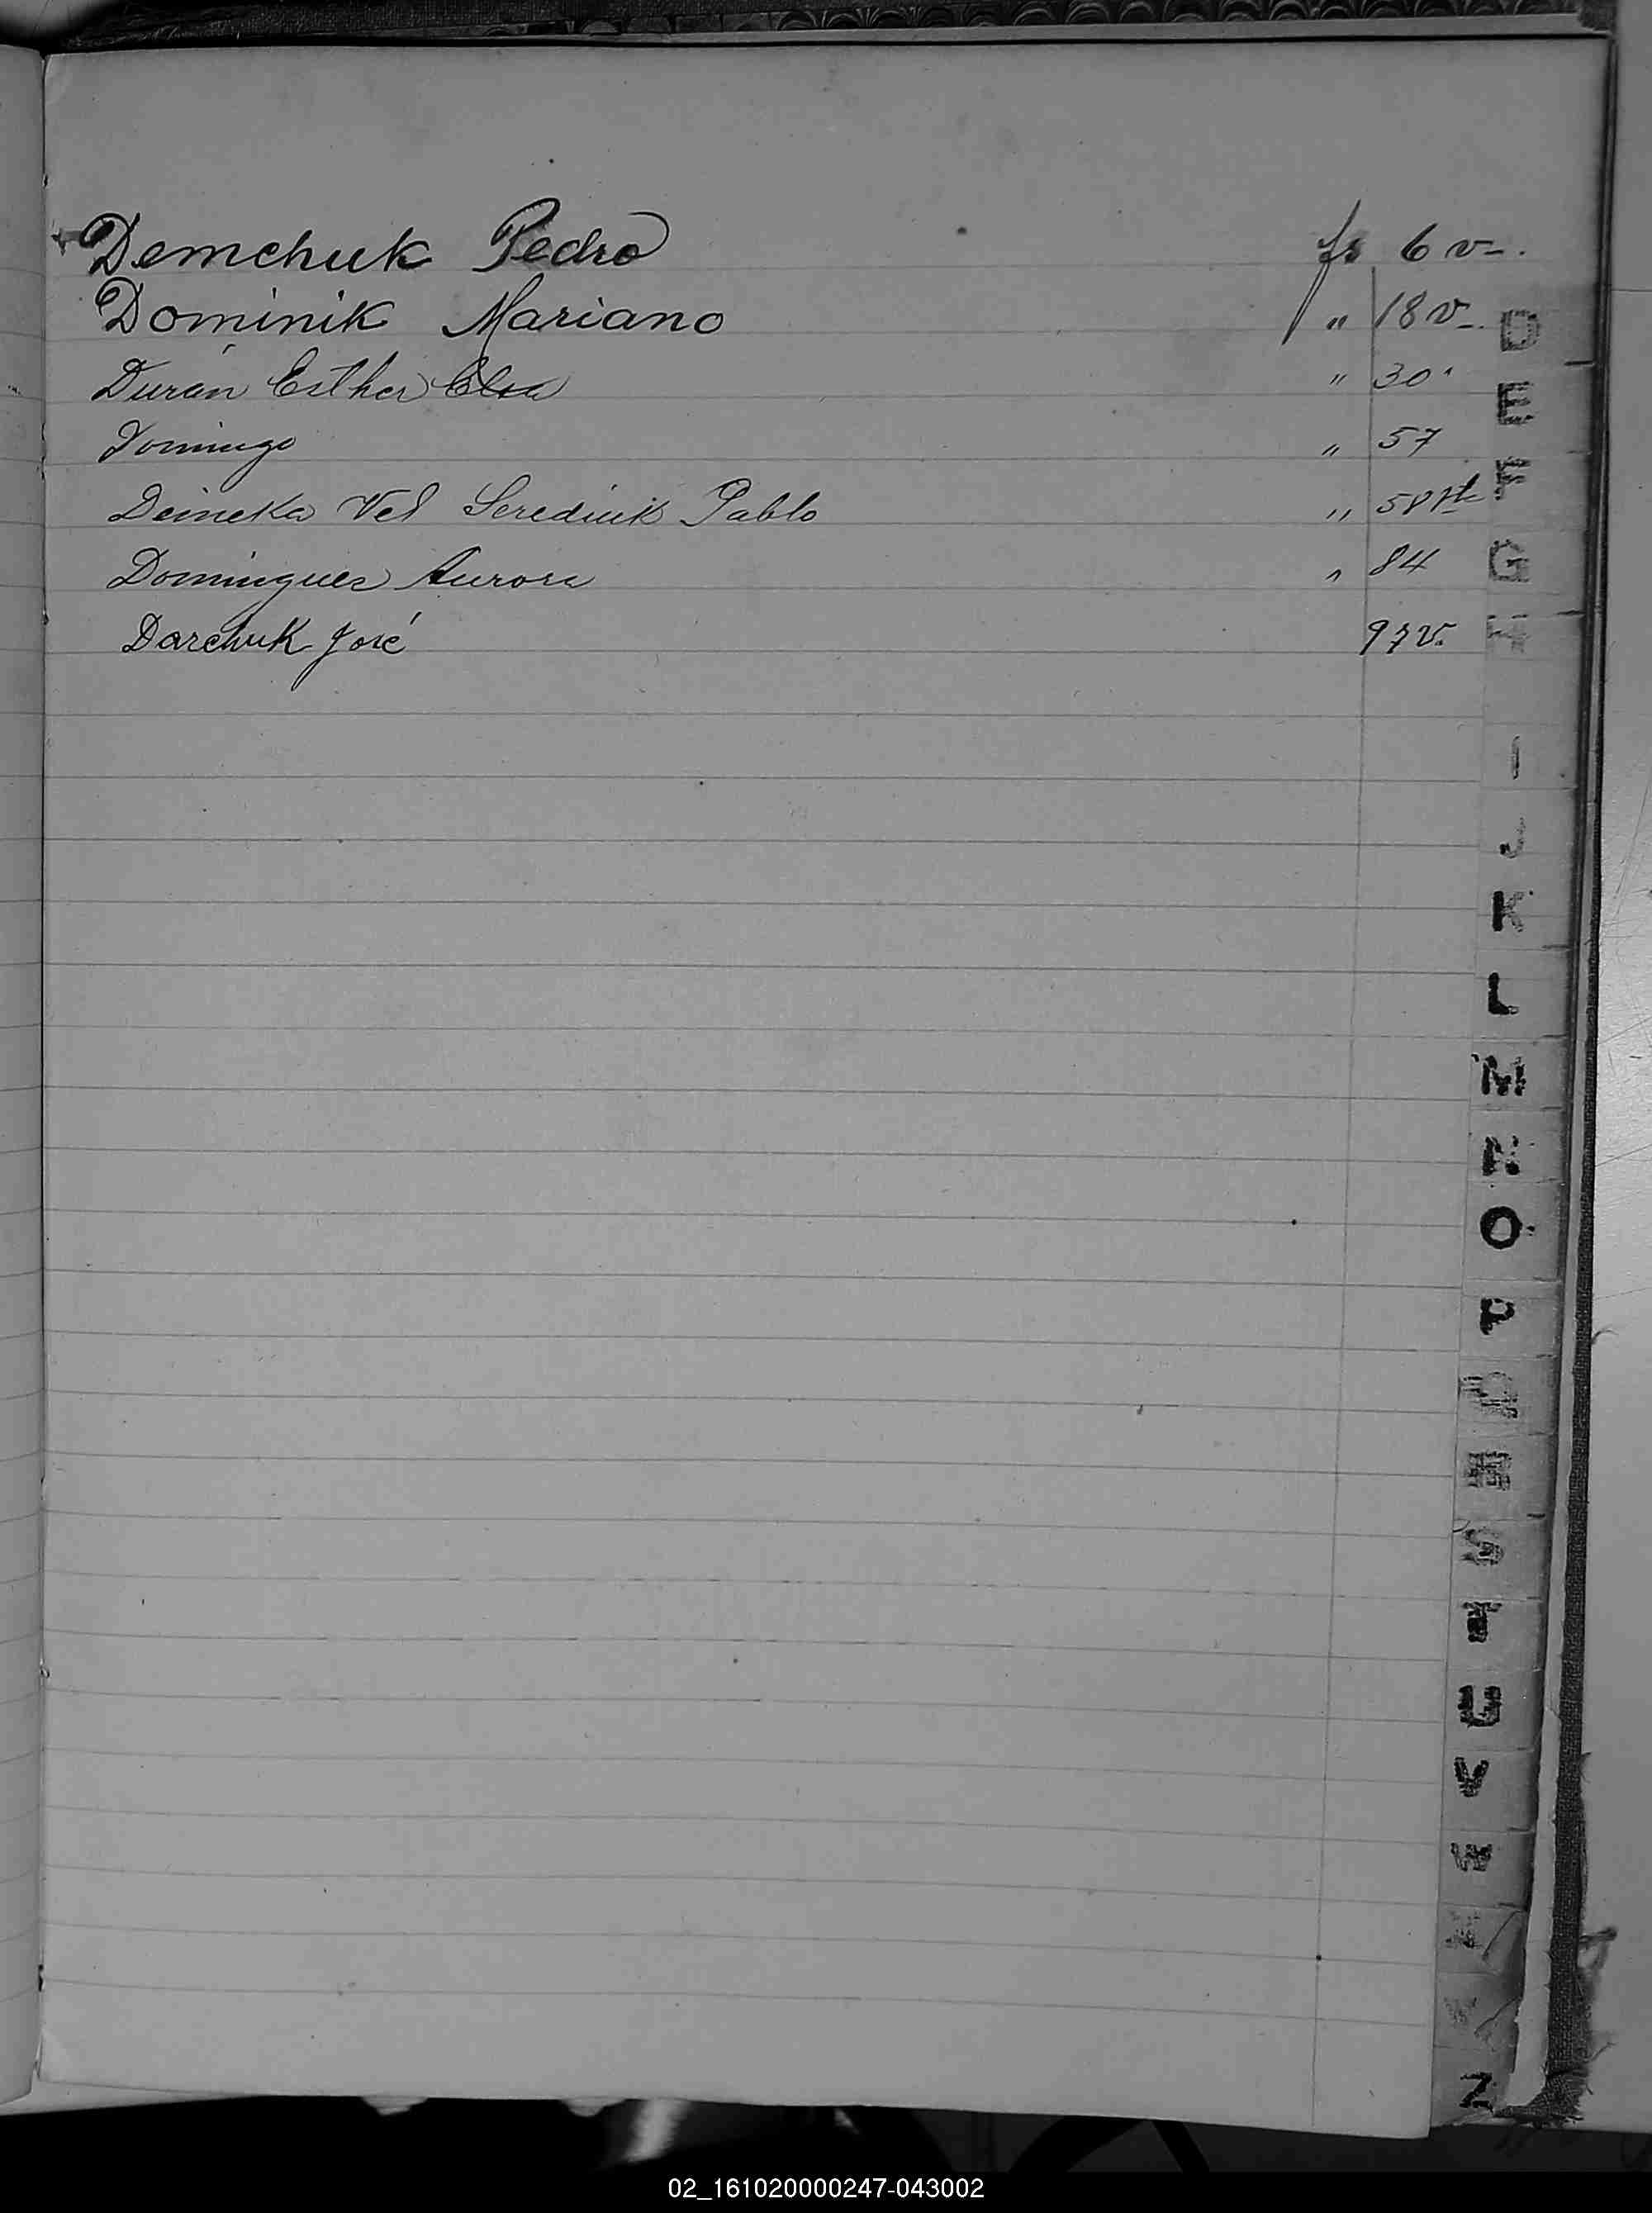 Demchuk Pedro fs 6 v-.
Dominik Mariano " 18 v-.
Durán Esther Elsa " 30
Domingo " 57
Deineka Vel Serediuk Pablo " 58
Domingues Aurora " 84
Darchuk José 97 v.
D
E
F
G
H
I
J
K
L
M
N
O
P
Q
R
S
T
U
V
W
X
Y
Z
02_161020000247-043002